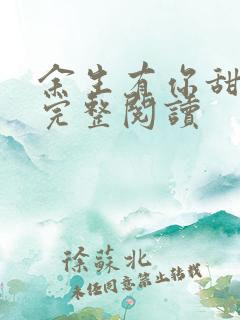 余生有你甜
完整閱讀
徐蘇北
未經同意禁止轉載